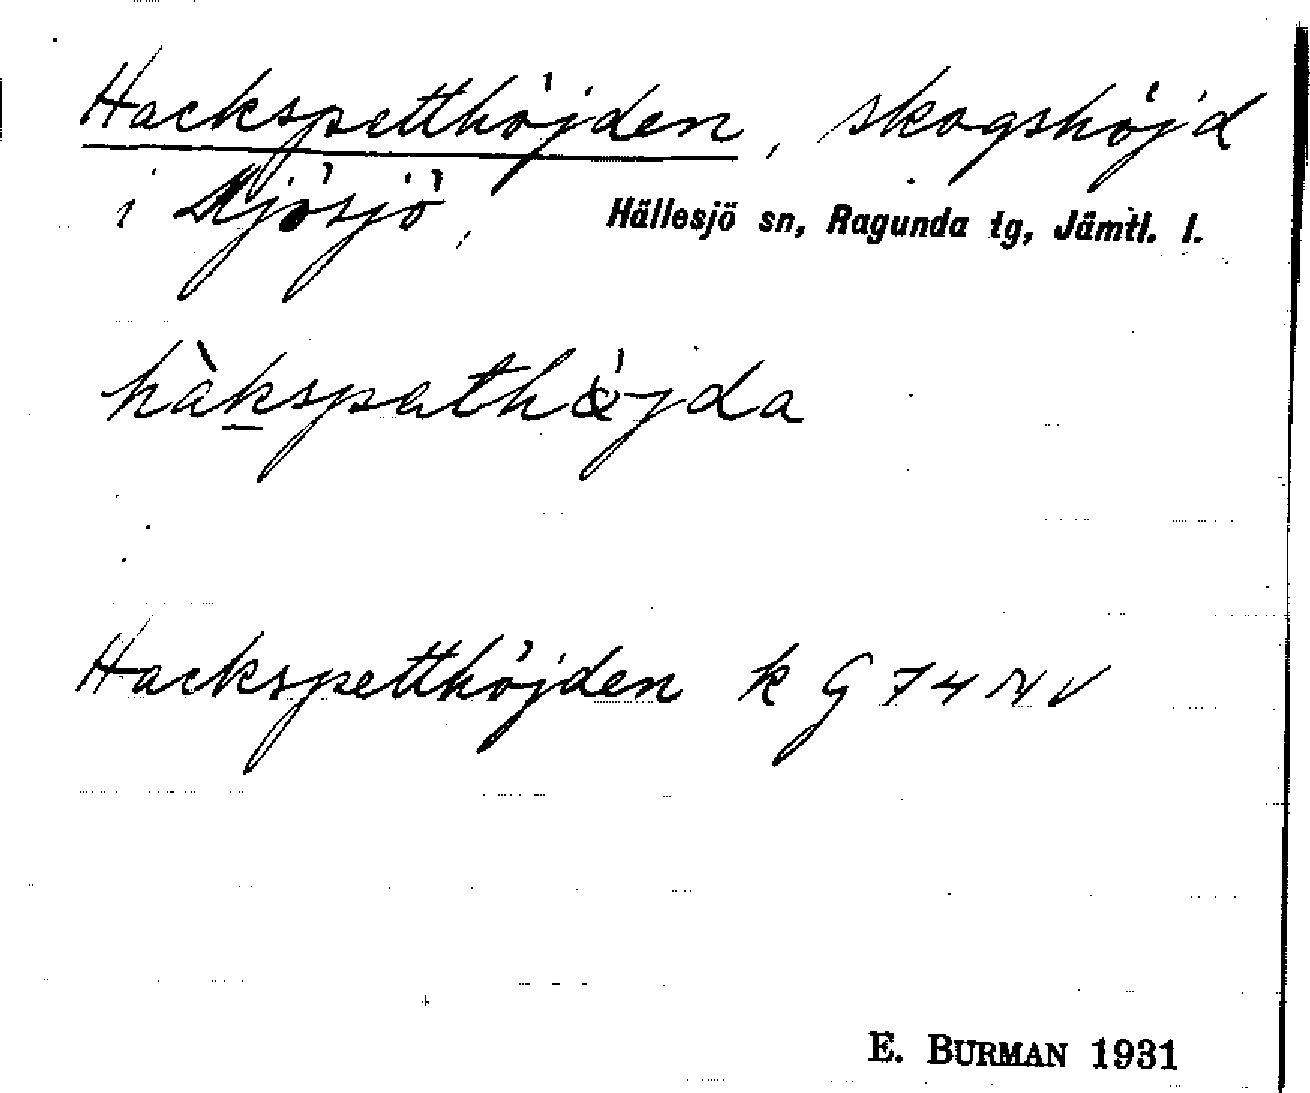 Hackspetthöjden, skogshöjd
i Kjösjö, Hällesjö sn, Ragunda tg, Jämtl. l.
hàkspathøjda
Hackspetthöjden k G 74 NV
E. BURMAN 1931